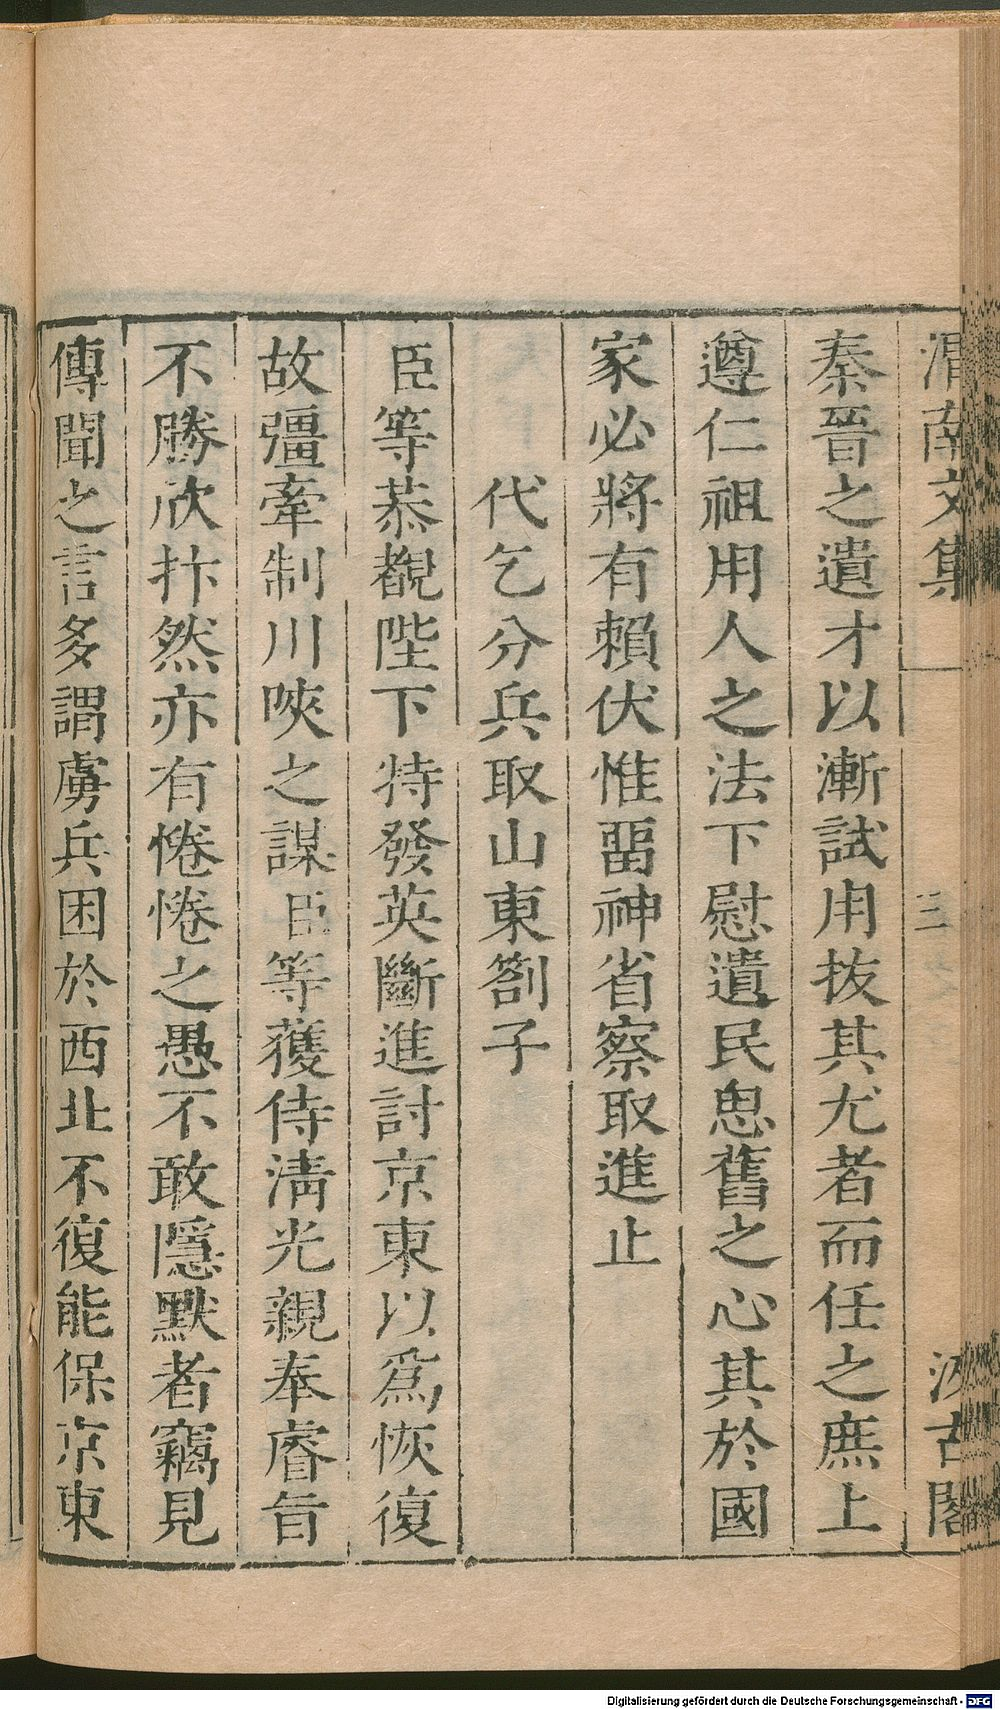 渭南文集 三 汲古閣
秦晉之遺才以漸試用拔其尤者而任之庶上
遵仁祖用人之法下慰遺民思舊之心其於國
家必將有賴伏惟畱神省察取進止
代乞分兵取山東劄子
臣等恭覩陛下特發英斷進討京東以爲恢復
故彊牽制川陜之謀臣等獲侍淸光親奉睿旨
不勝欣抃然亦有惓惓之愚不敢隱默者竊見
傳聞之言多謂虜兵困於西北不復能保京東
Digitalisierung gefördert durch die Deutsche Forschungsgemeinschaft - DFG